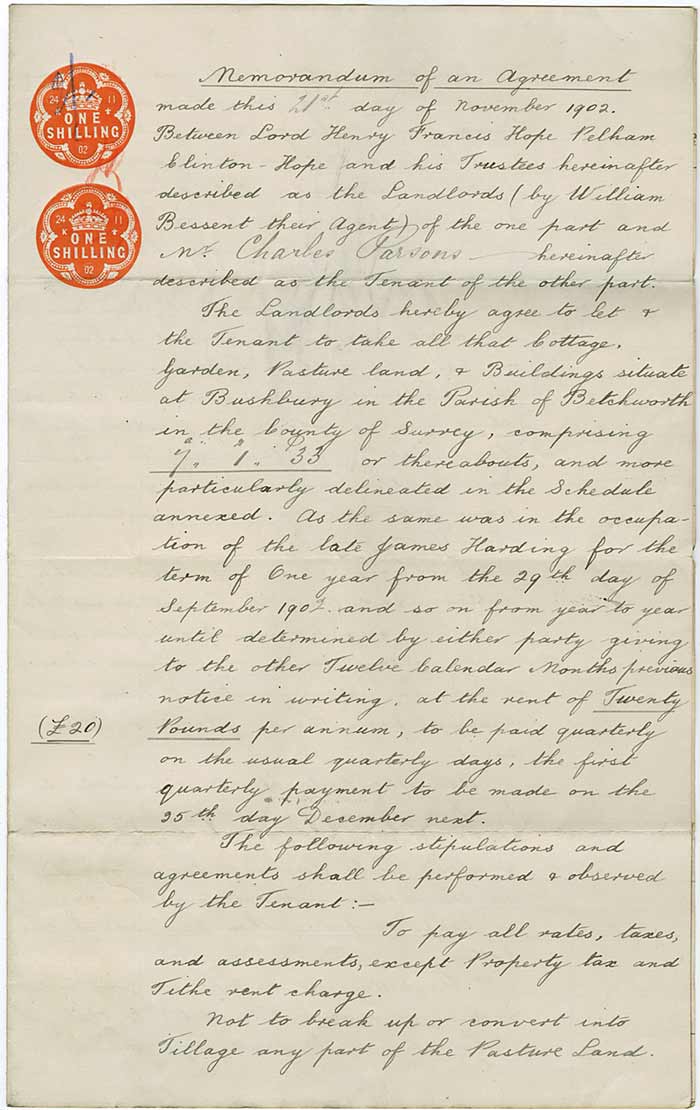 Memorandum of an Agreement
made this 21st day of November 1902.
Between Lord Henry Francis Hope Pelham
Clinton-Hope and his Trustees hereinafter
described as the Landlords (by William
Bessent their Agent) of the one part and
Mr. Charles Parsons — hereinafter
described as the Tenant of the other part.
The Landlords hereby agree to let &
the Tenant to take all that Cottage,
Garden, Pasture land, & Buildings situate
at Bushbury in the Parish of Betchworth
in the County of Surrey, comprising
33 or thereabouts, and more
particularly delineated in the Schedule
annexed. As the same was in the occupa-
tion of the late James Harding for the
term of One year from the 29th day of
September 1902. and so on from year to year
until determined by either party giving
to the other Twelve Calendar Months previous
notice in writing, at the rent of Twenty
(£20) Pounds per annum, to be paid quarterly
on the usual quarterly days, the first
quarterly payment to be made on the
25th day December next.
The following stipulations and
agreements shall be performed & observed
by the Tenant:—
To pay all rates, taxes,
and assessments, except Property tax and
Tithe rent charge.
Not to break up or convert into
Tillage any part of the Pasture Land.
24 11
ONE
SHILLING
02
24 11
K +
ONE
SHILLING
02